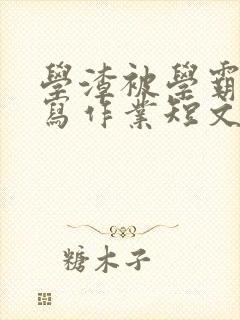 學渣被學霸
寫作業短文
糖木子